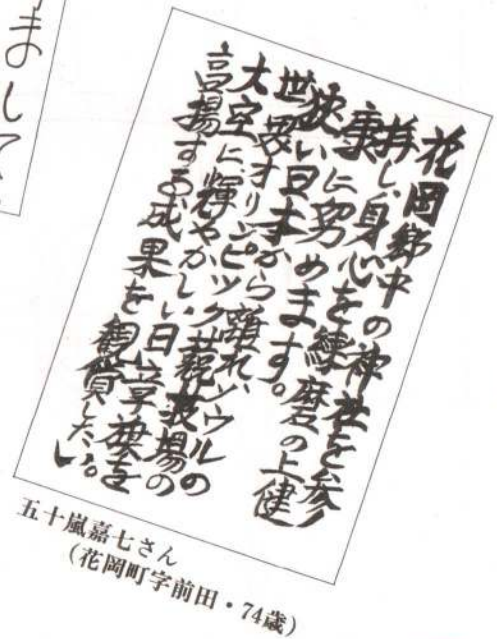 花岡郷中の神社を参
拝し、身心を練磨の上健
康に努めます。
狭い日本から離れ、ソウルの
世界オリンピック競技場の
大空に輝やかしい日章旗を
高揚する成果を観賞したい。
五十嵐嘉七さん
(花岡町字前田・74歳)
まして